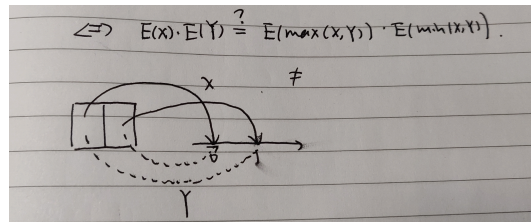 ⇐⇒ E(X)·E(Y) ?= E(max(X,Y))·E(min(X,Y)).
X ≠
0 1
Y